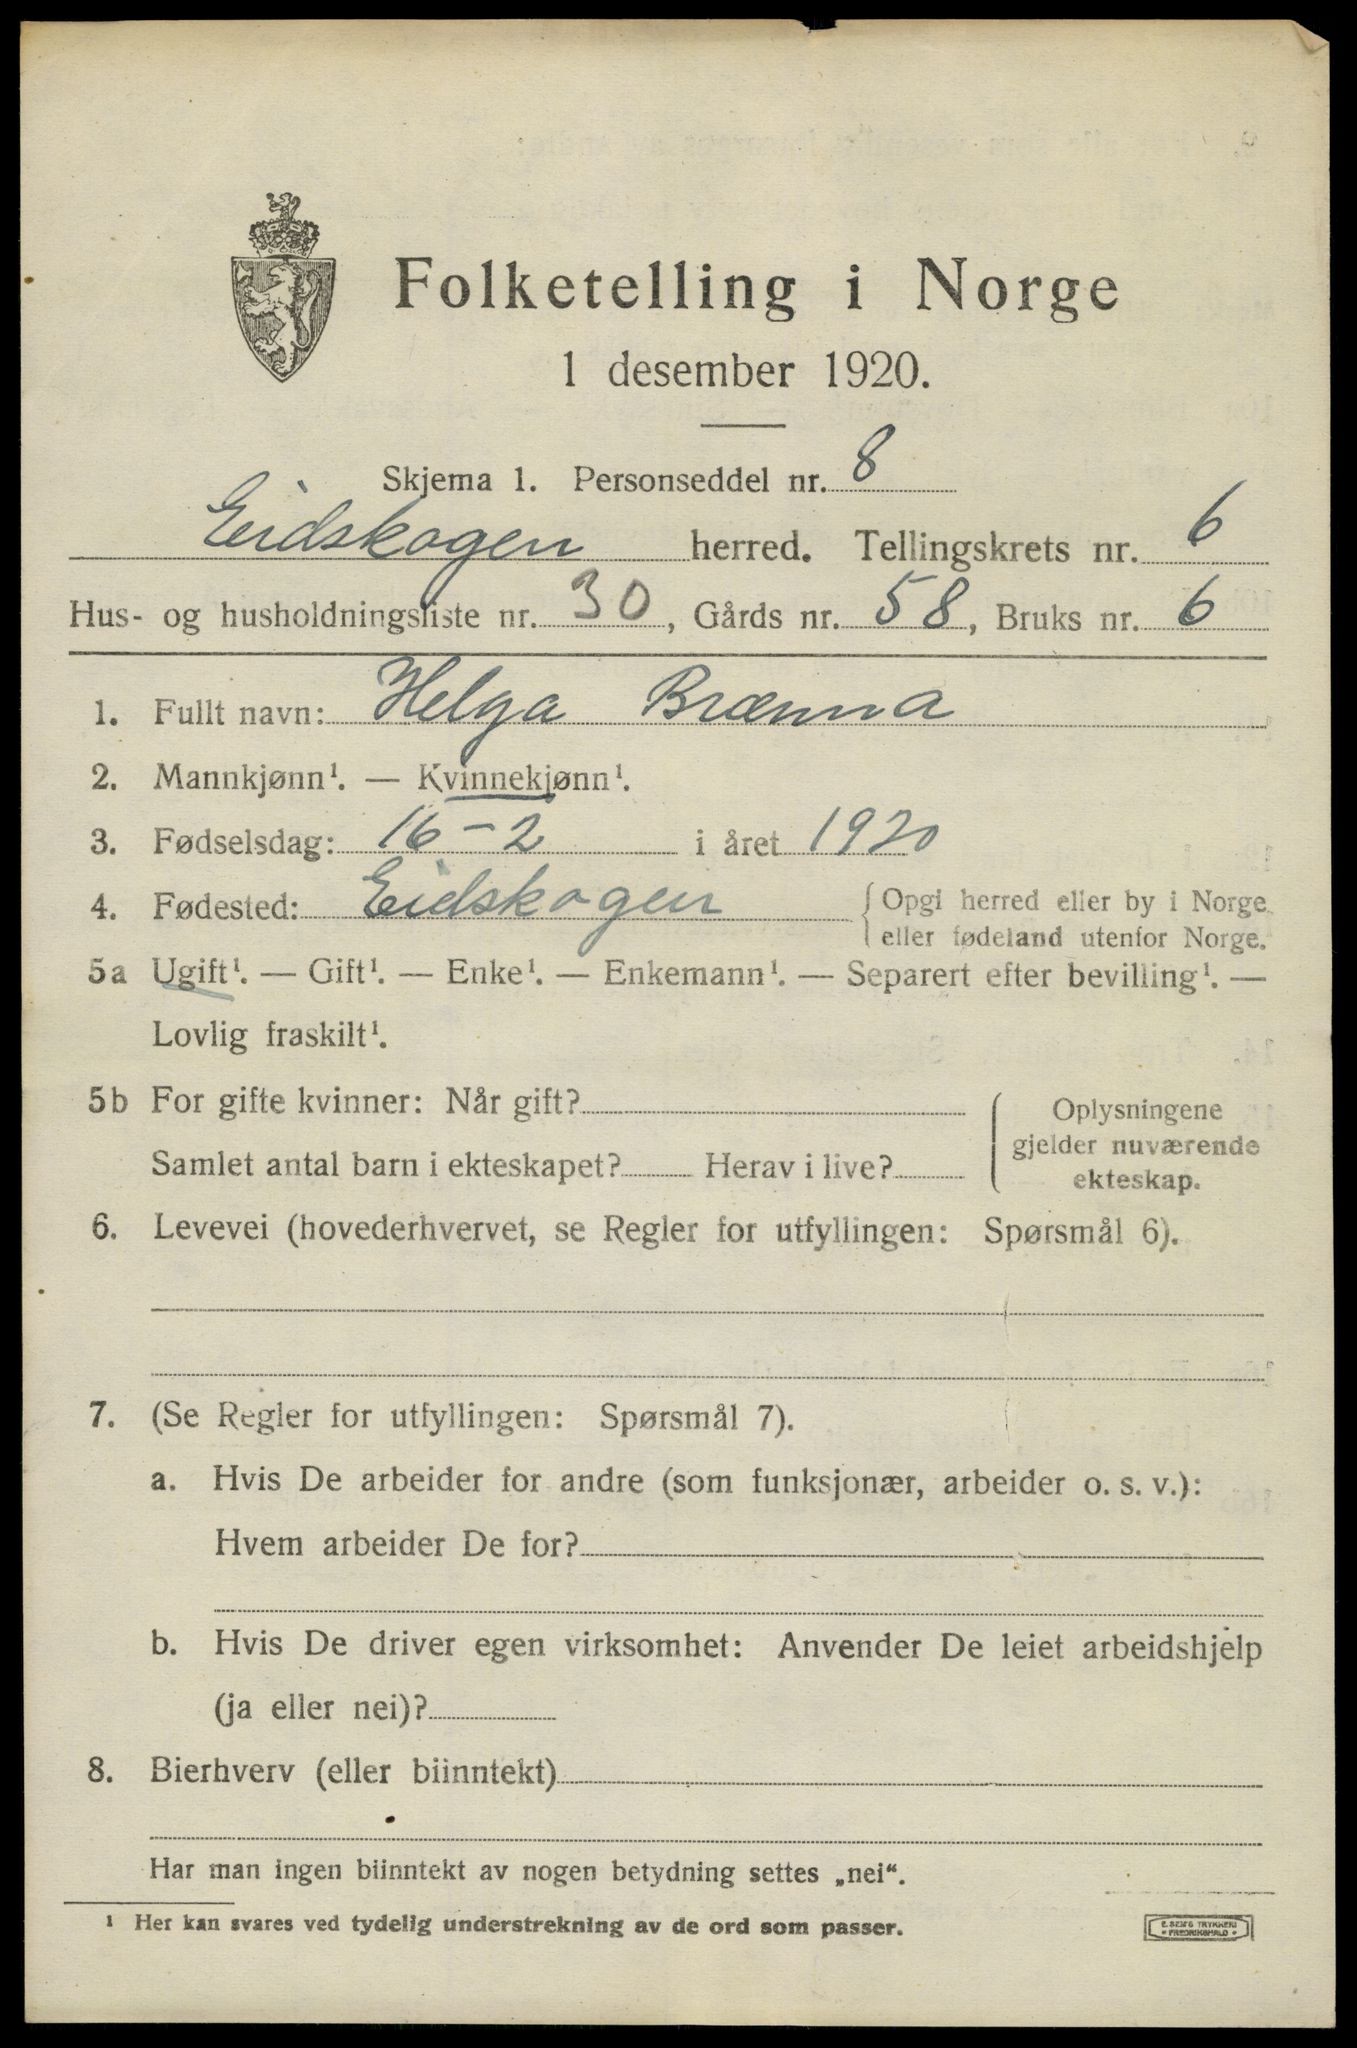 Folketelling i Norge
1 desember 1920.
Skjema 1. Personseddel nr. 8
Eidskogen herred. Tellingskrets nr. 6
Hus- og husholdningsliste nr. 30, Gårds nr. 58, Bruks nr. 6
1. Fullt navn: Helga Brænna
2. Mannkjønn¹. — Kvinnekjønn¹.
3. Fødselsdag: 16-2 i året 1920
4. Fødested: Eidskogen { Opgi herred eller by i Norge
eller fødeland utenfor Norge.
5a Ugift¹. — Gift¹. — Enke¹. — Enkemann¹. — Separert efter bevilling¹. —
Lovlig fraskilt¹.
5b For gifte kvinner: Når gift?
Samlet antal barn i ekteskapet? Herav i live?
Oplysningene
gjelder nuværende
ekteskap.
6. Levevei (hovederhvervet, se Regler for utfyllingen: Spørsmål 6).
7. (Se Regler for utfyllingen: Spørsmål 7).
a. Hvis De arbeider for andre (som funksjonær, arbeider o. s. v.):
Hvem arbeider De for?
b. Hvis De driver egen virksomhet: Anvender De leiet arbeidshjelp
(ja eller nei)?
8. Bierhverv (eller biinntekt)
Har man ingen biinntekt av nogen betydning settes „nei“.
¹ Her kan svares ved tydelig understrekning av de ord som passer.
E. SEMS TRYKKERI
• FREDRIKSHALD •